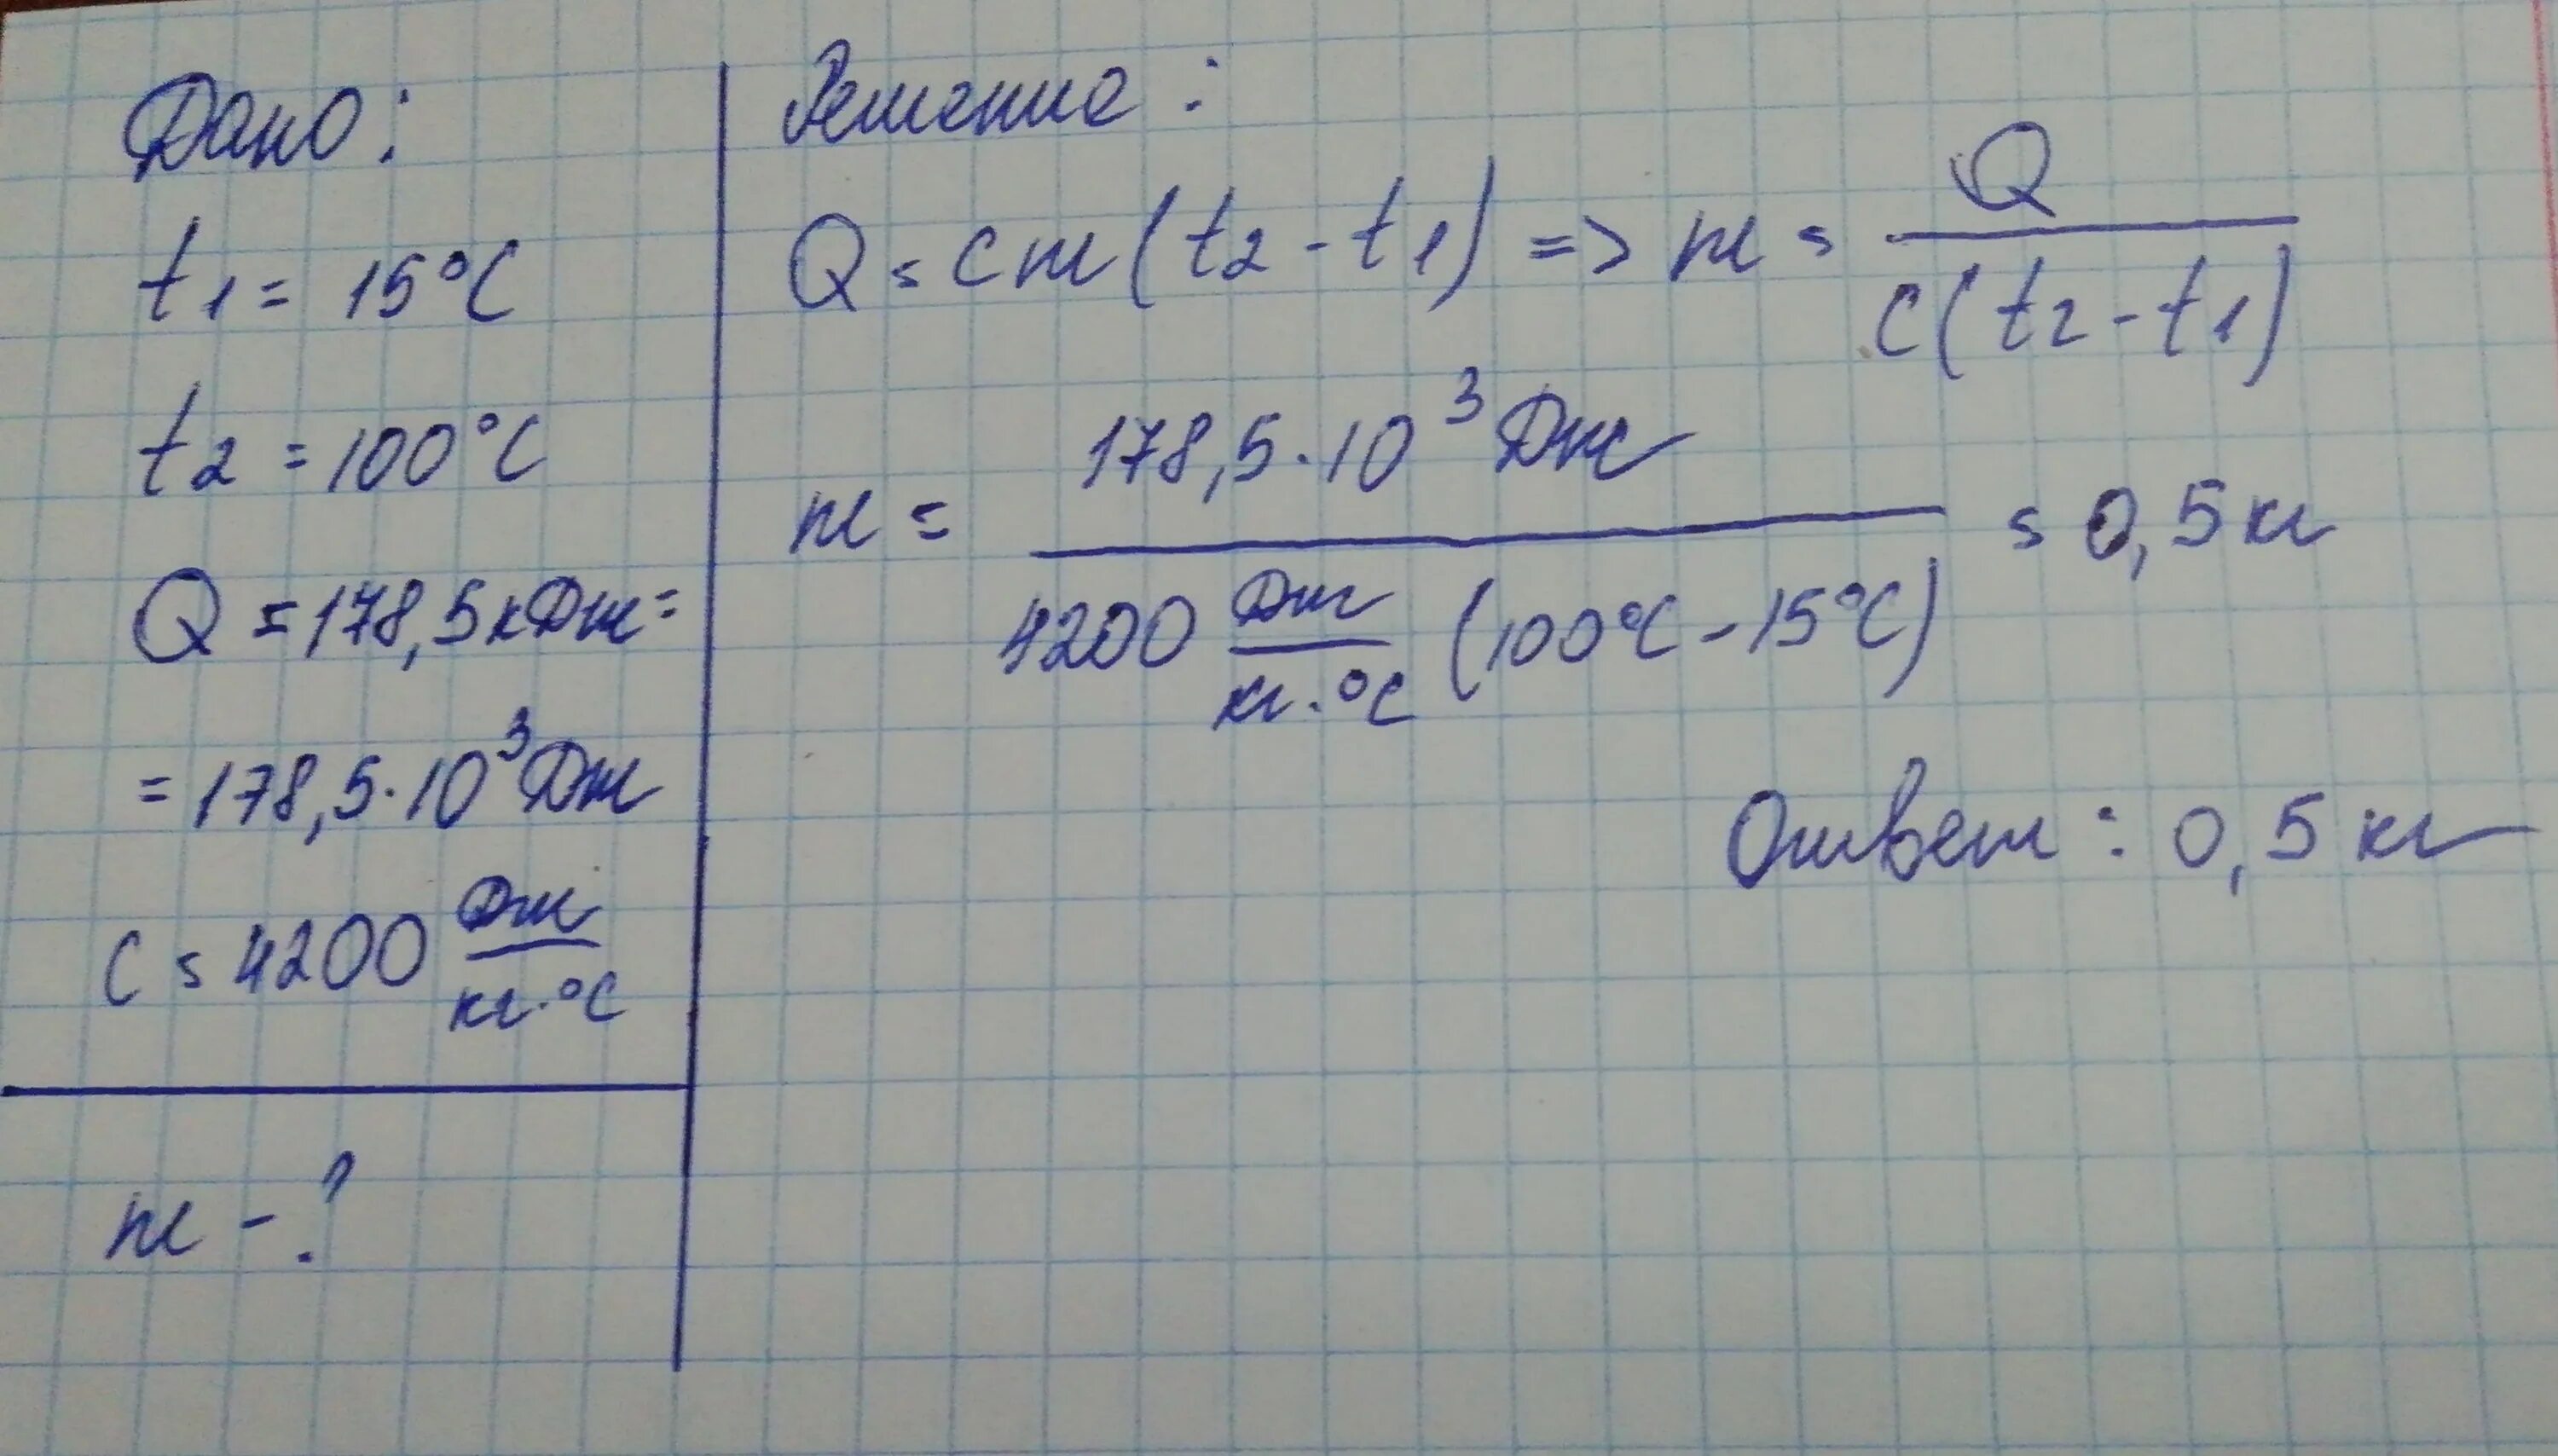 Дано:
t1 = 15°C
t2 = 100°C
Q = 178,5 кДж =
= 178,5·10³ Дж
c = 4200 Дж/кг·°C
m - ?
Решение:
Q = cm(t2 - t1) => m = Q/c(t2 - t1)
m = 178,5·10³ Дж / 4200 Дж/кг·°C (100°C - 15°C) = 0,5 кг
Ответ: 0,5 кг